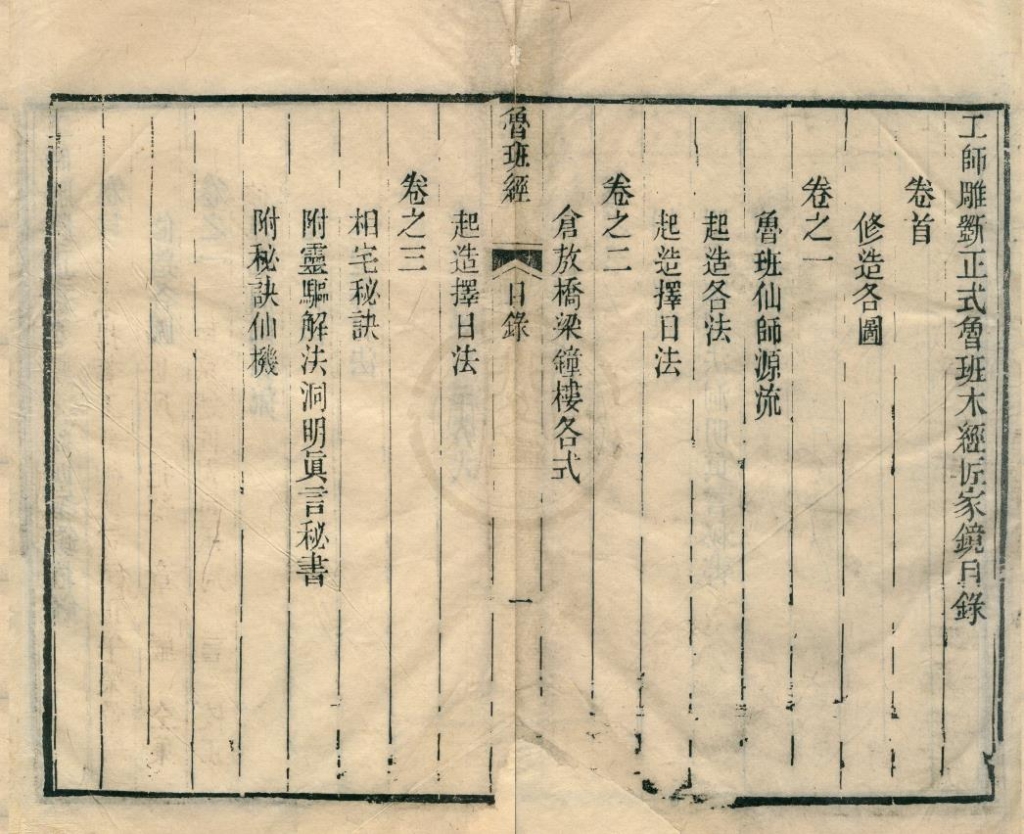 工師雕斲正式魯班木經匠家鏡目錄
卷首
修造各圖
卷之一
魯班仙師源流
起造各法
起造擇日法
卷之二
倉敖橋梁鐘樓各式
魯班經 目錄 一
起造擇日法
卷之三
相宅秘訣
附靈驅解法洞明眞言秘書
附秘訣仙機